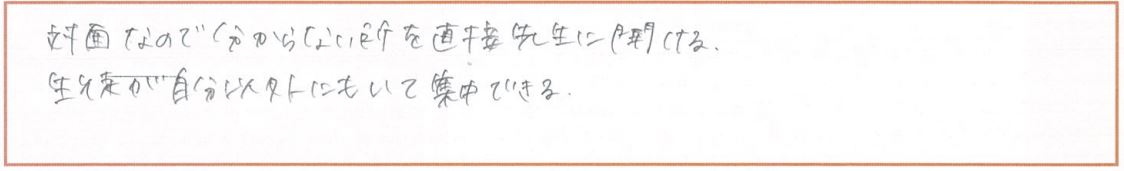 対面なので分からない所を直接先生に聞ける.
生徒が自分以外にもいて集中できる.